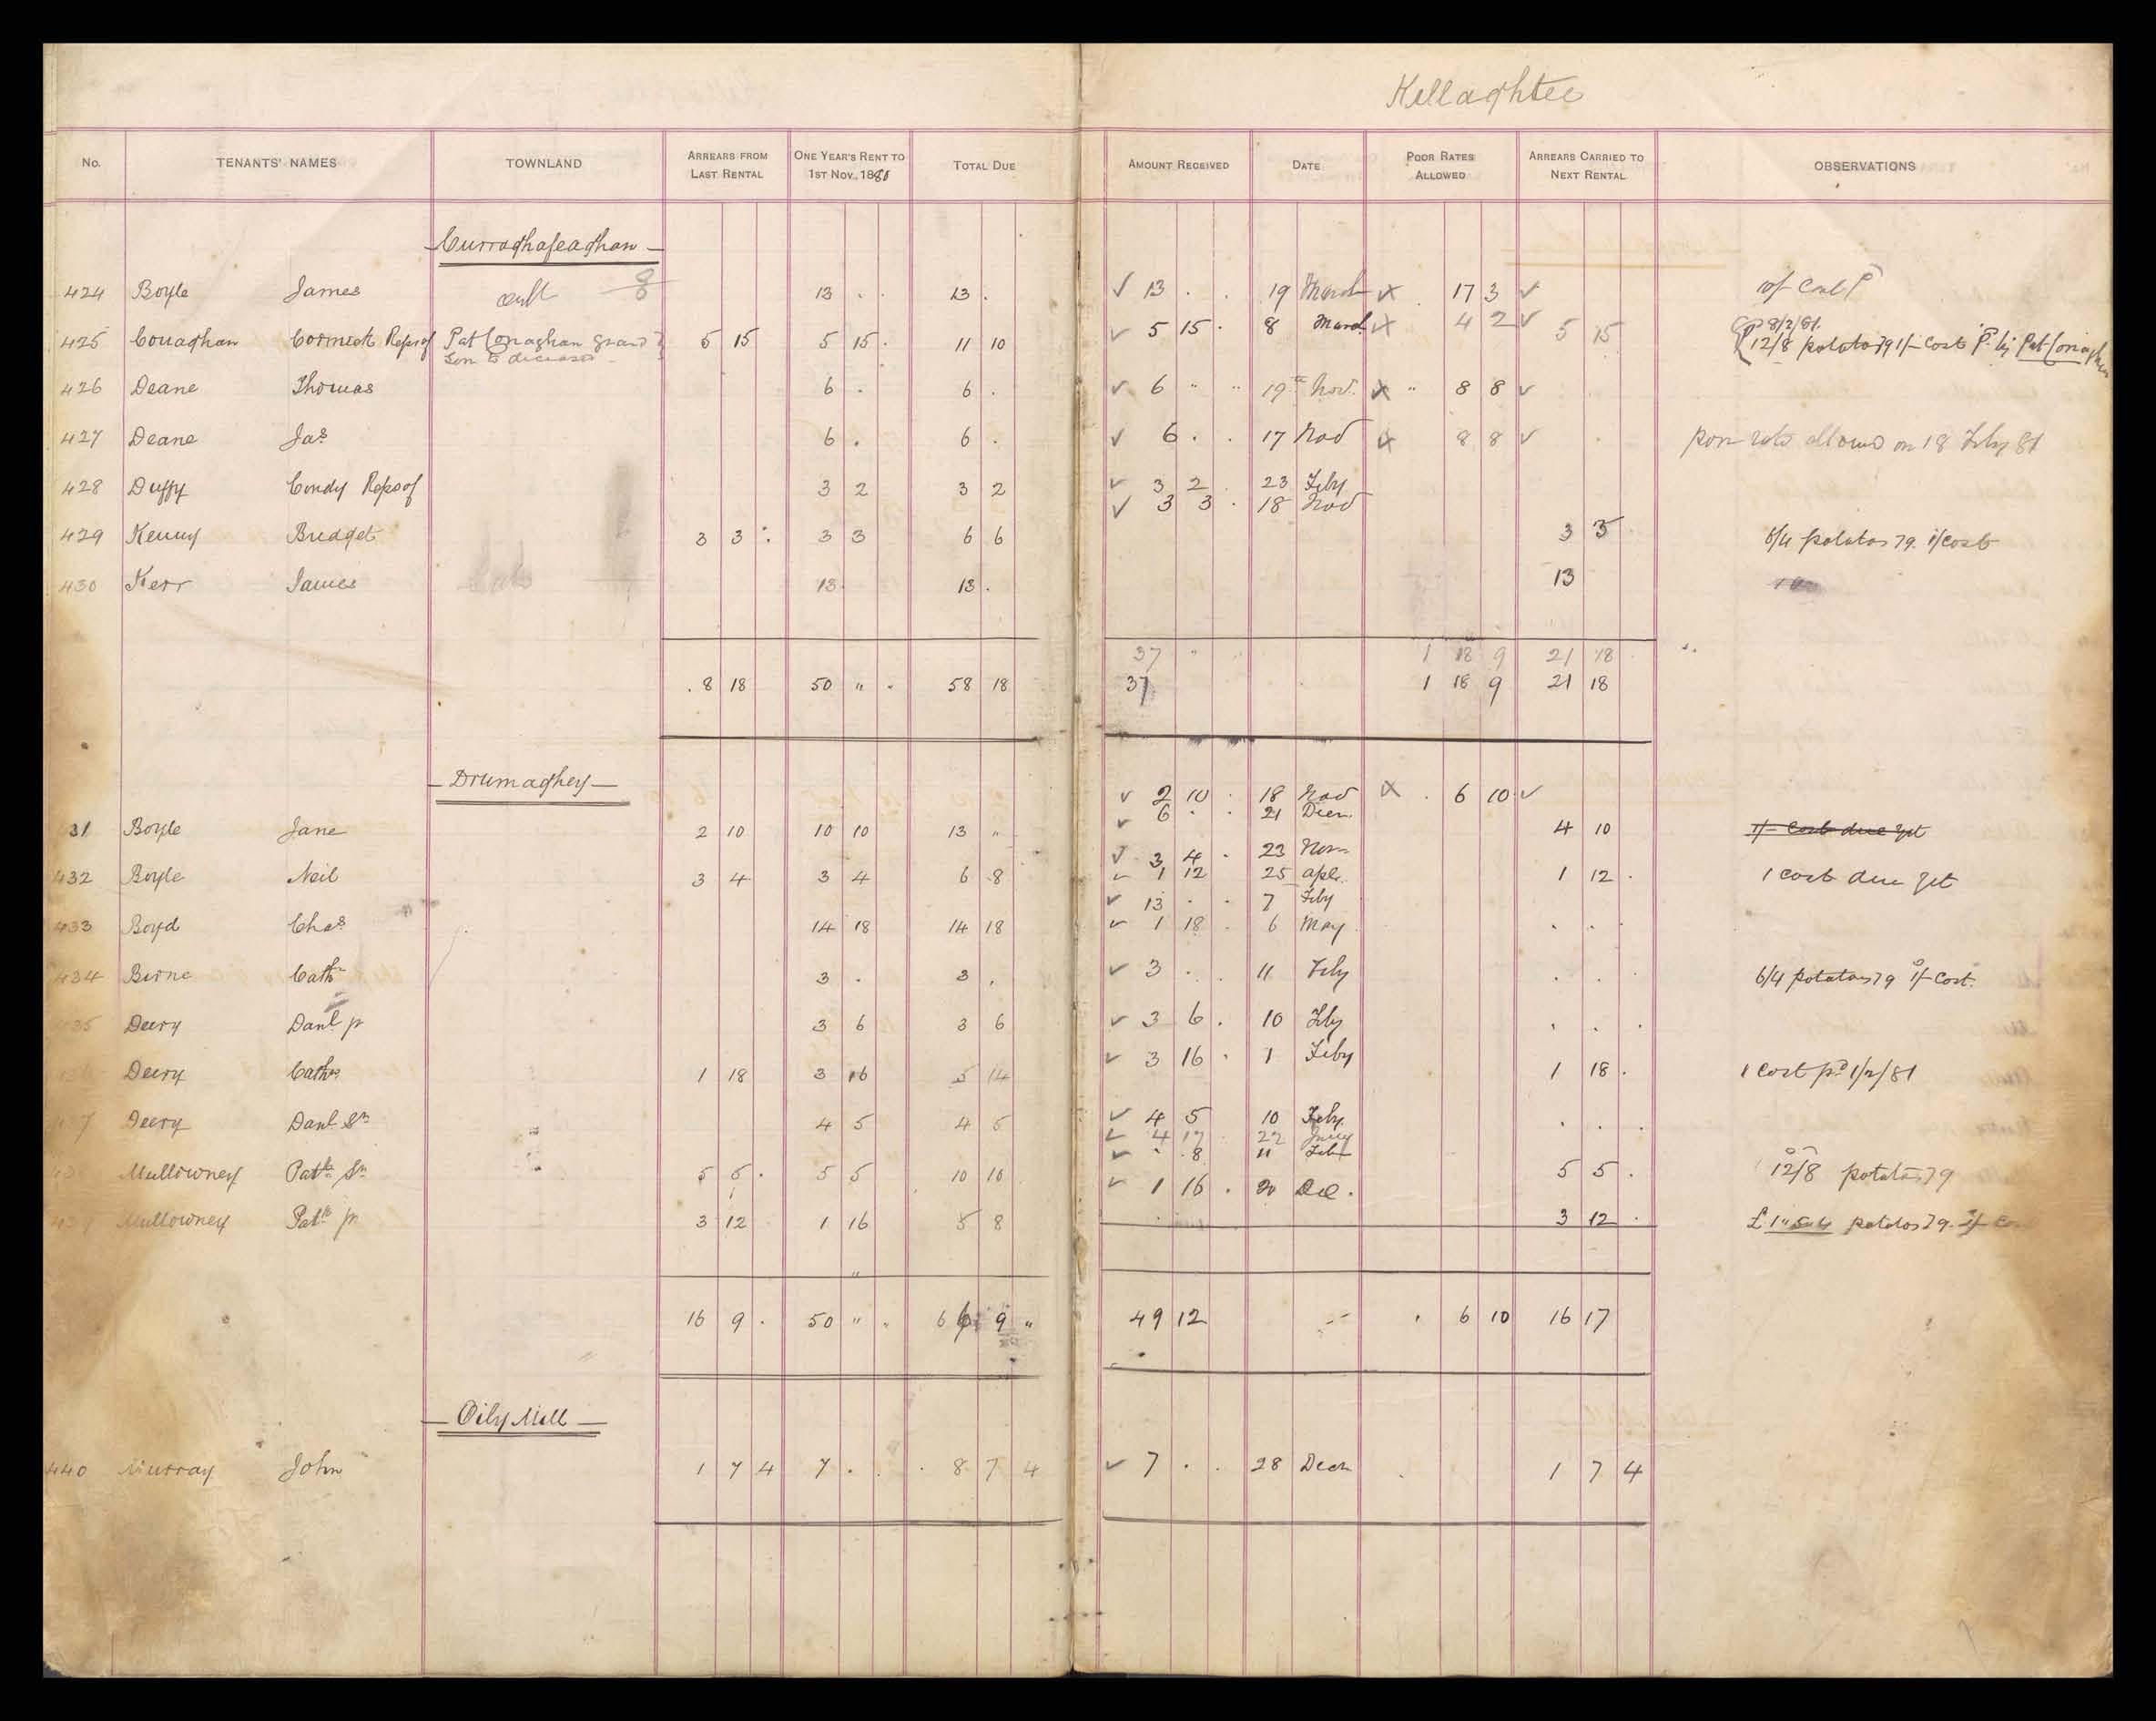 Killaghtee
No. TENANTS' NAMES TOWNLAND ARREARS FROM LAST RENTAL ONE YEAR'S RENT TO 1ST NOV., 1880 TOTAL DUE AMOUNT RECEIVED DATE POOR RATES ALLOWED ARREARS CARRIED TO NEXT RENTAL OBSERVATIONS
Curraghafeaghan
424 Boyle James 8 13 . . 13 . ✓ 13 . . 19 March x . 17 3 ✓
425 Conaghan Cormick Reps of Pat Conaghan grand 5 15 5 15 . 11 10 ✓ 5 15 . 8 March x 4 2 ✓ 5 15 8/2/81.
son to diceased 12/8 potatos 79 1/- Cost Pd. by Pat Conaghan
426 Deane Thomas 6 . 6 . ✓ 6 " " 19th Nov. x " 8 8 ✓
427 Deane Jas 6 . 6 . ✓ 6 . . 17 Nov x 8 8 ✓ poor rate allowed on 18 Feby 81
428 Duffy Condy Reps of 3 2 3 2 ✓ 3 2 . 23 Feby
✓ 3 3 . 18 Nov
429 Kenny Bridget 3 3 : 3 3 6 6 3 3 6/4 potatos 79. 1/ cost
430 Kerr James 13 . 13 . 13
37 " 1 18 9 21 18
8 18 50 " . 58 18 37 1 18 9 21 18
Drumaghey
✓ 2 10 . 18 Nov x . 6 10 ✓
431 Boyle Jane 2 10 10 10 13 " ✓ 6 . . 21 Decr. 4 10 1/- Cost due yet
✓ 3 4 . 23 Novr
432 Boyle Neil 3 4 3 4 6 8 ✓ 1 12 25 apl. 1 12 . 1 cost due yet
✓ 13 . . 7 Feby
433 Boyd Chas 14 18 14 18 ✓ 1 18 . 6 May . .
434 Birne Cath 3 . 3 . ✓ 3 . . 11 Feby . . 6/4 potatoes 79 1/- Cost.
435 Deery Danl jr 3 6 3 6 ✓ 3 6 . 10 Feby . . .
Deery Cath 1 18 3 16 5 14 ✓ 3 16 . 1 Feby 1 18 . 1 Cost pd 1/2/81
437 Deery Danl Sr 4 5 4 5 ✓ 4 5 10 Feby. . . .
✓ 4 17 22 Jany
✓ " 8 11 Feb
Mullowney Patk Sr 5 5 . 5 5 10 10 5 5 . 12/8 potatos 79
✓ 1 16 . 20 Dec.
439 Mullowney Patk jr 3 12 1 16 5 8 3 12 . potatos 79.
16 9 . 50 " " 66 9 " 49 12 . 6 10 16 17
Oily Mill
440 Murray John 1 7 4 7 . . 8 7 4 ✓ 7 . . 28 Decr 1 7 4